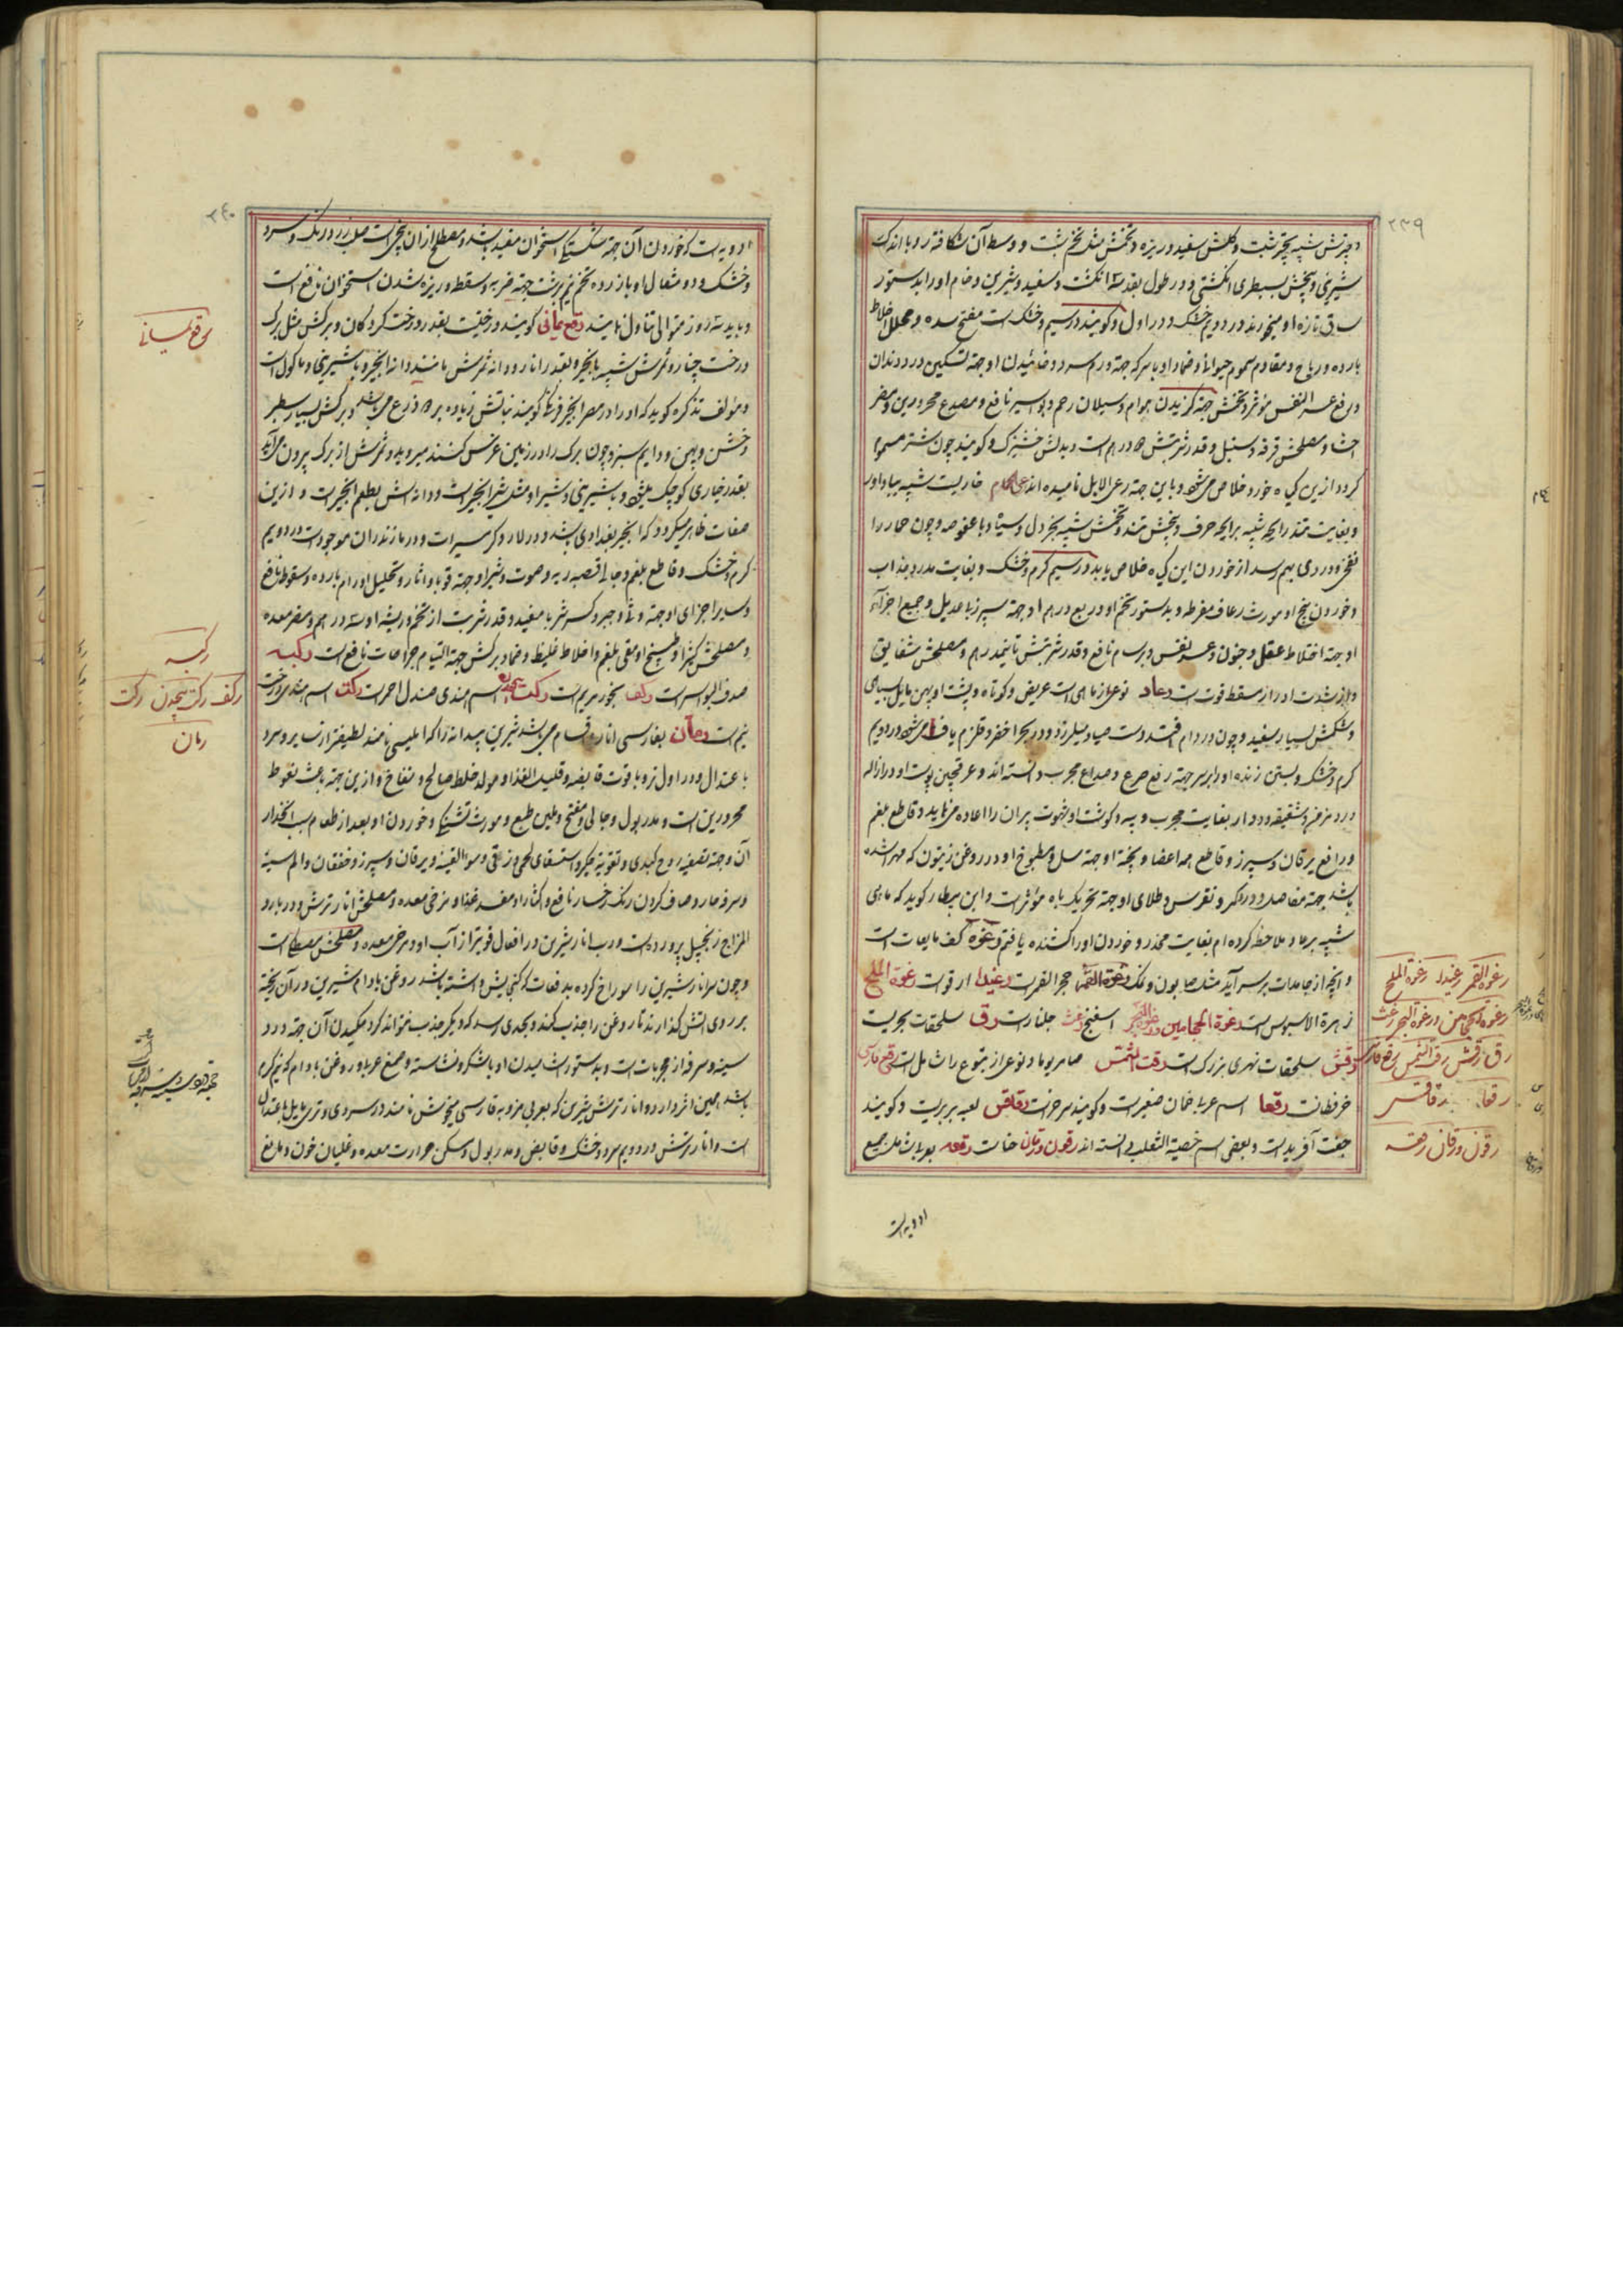 ٢٣٩
و چترش شبیه بچتر شبت و کلش سفید و ریزه و تخمش مثل تخم شبت و وسط آن شکافته و با اندک
شیرینی و بیخش بسطبری انگشتی و در طول بقدر سه انگشت و سفید و شیرین و خام او را بدستور
ساق تازه او میخورند در دویم خشک و در اول و گویند در سیم و خشک است مفتح سده و محلل اخلاط
بارده و ریاح و مقاوم سموم حیوانی و ضماد او با سرکه جهة ورم سرد و خائیدن او جهة تسکین درد دندان
و رفع عسر النفس مؤثر و تخمش جهة گزیدن هوام و سیلان رحم و بواسیر نافع و مصدع محرورین و مضر
احشا و مصلحش قرفه و سنبل و قدر شربتش ٥ درهم است و بدلش خشیزک و گویند چون شتر مسموم
گردد ازین گیاه خورد خلاص می‌شود و باین جهة رعی الابل نامیده اند رعی الحمام فارسیت شبیه
و بغایت تند رایحه شبیه برایحه حرف و بیخش تند و تخمش شبیه بخردل و سیاه و با عفوصه و چون حمار را
نفخ و دردی بهم رسد از خوردن این گیاه خلاص یابد در سیم گرم و خشک و بغایت مدر و جذاب
و خوردن بیخ او مورث رعاف مفرط و بدستور تخم او و ربع درهم او جهة سپرز با عدیل و جمیع اجزاء
او جهة اختلاط عقل و جنون و عسر نفس و برسام نافع و قدر شربتش تا نیمدرهم و مصلحش شقایق
و از شدت ادرار مسقط قوت است رعاد نوعی از ماهی است عریض و کوتاه و پشت او پهن مایل بسیاهی
و شکمش بسیار سفید و چون در دام افتد دست صیاد میلرزد و در بحر اخضر و قلزم یافت می‌شود در دویم
گرم و خشک و بستن زنده او را بر سر جهة رفع صرع و صداع مجرب دانسته اند و عرقچین پوست او در ازاله
درد مزمن و شقیقه و دوار بغایت مجرب و پیه و گوشت او شهوت پیران را اعاده می‌نماید و قاطع بلغم
و رافع یرقان و سپرز و قاطع همه اعضا و پخته او جهة سل و مطبوخ او در روغن زیتون که مهرا شده
باشد جهة مفاصل و درد کمر و نقرس و طلای او جهة تحریک باه مؤثر است و ابن بیطار گوید که ماهی
شبیه برعاد ملاحظه کرده ام بغایت مخدر و خوردن او را کشنده یافتم رغوه کف مایعات است
و آنچه از جامدات بر سر آید مثل صابون و نمک رغوة القمر حجر القمر است رغیدا ارقوات رغوة الملح
زهرة الاسیوس است رغوة الحجامین و رغوة البحر اسفنج رغث جلنار است رق سلحفات بحریست
رقش سلحفات نهری بزرک است رقت الشمس صامریوما و نوعی از یتوع را شامل است رقع فارسی
خرنطانت رقعا اسم عربی خمان صغیر است و گویند سرخزانست رقاقس لعبه بربریت و گویند
جفت آفرید است و بعضی اسم خصیة الثعلب دانسته اند رقون و رقان حناست رقعه بعربی شامل جمیع
ادویه است
رغوة القمر رغیدا رغوة الملح
رغوة الحجامین و رغوة البحر رغث
رق رقش رقت الشمس رقع فارسی
رقعا رقاقس
رقون و رقان رقعه
٢٤٠
ادویه است که خوردن آن جهة شکستگی استخوان مفید باشد و مصطلح از آن بیخی است صلب زرد رنگ و سرد
و خشک و دو مثقال او با زرده تخم نیمرشت جهة ضربه و سقطه و ریزه شدن استخوان نافع است
و باید سه روز متوالی تناول نمایند رقع یمانی گویند درختیست بقدر درخت گردکان و برگش مثل برگ
درخت چنار و ثمرش شبیه بانجیر و بقدر انار و دانه ثمرش مانند دانه انجیر و با شیرینی و ماکول است
و مؤلف تذکره گوید که او را در مصر انجیر فرنگی گویند نباتش زیاده بر ٥ ذرع می‌باشد و برگش بسیار سطبر
و خشن و پهن و دایم سبز و چون برگ را در زمین غرس کنند میروید و ثمرش از برگ بیرون می‌آید
بقدر خیاری کوچک میشود و با شیرینی و شیر او مثل شیر انجیر است و دانه اش بطعم انجیر است و ازین
صفات ظاهر میگردد که انجیر بغدادی باشد و در لار و گرمسیرات و در مازندران موجود است در دویم
گرم و خشک و قاطع بلغم و جالی قصبه ریه و صوت و شیر او جهة قوبا و آثار و تحلیل اورام بارده و سقوط نافع
و سایر اجزای او جهة وثی و جبر و کسر شربا مفید و قدر شربت از تخم و ریشه او سه درهم و مضر معده
و مصلحش کتیرا و طبیخ او مقی بلغم و اخلاط غلیظ و ضماد برگش جهة التیام جراحات نافع است رکبه
صدف البواسیر است رکف بخور مریم است رکت بچندن اسم هندی صندل احمر است رکت اسم هندی درخت
نیم است رمان بفارسی انار و اقسام می‌باشد شیرین بیدانه را که املیسی نامند لطیفتر از سایر و سرد
باعتدال و در اول تر و با قوت قابضه و قلیل الغذا و مولد خلط صالح و نفاخ و ازین جهة باعث نعوظ
محرورین است و مدر بول و جالی و مفتح و ملین طبع و مورث تشنگی و خوردن او بعد از طعام سبب انحدار
آن و جهة تصفیه روح کبدی و تقویة جگر و استسقای لحمی و زقی و سوء القنیه و یرقان و سپرز و خفقان و الم سینه
و سرفه حار و صاف کردن رنگ رخسار نافع و اکثار او مفسد غذا و مرخی معده و مصلحش انار ترش و در بارد
المزاج زنجبیل پرورده است و رب انار شیرین در افعال قویتر از آب او و مرخی معده و مصلحش مصطکی است
و چون سر انار شیرین را سوراخ کرده بدفعات که گنجایش داشته باشد روغن بادام شیرین در آن ریخته
بر روی آتش گذارند تا روغن را جذب کند و بحدی رسد که دیگر جذب نتواند کرد مکیدن آن جهة درد
سینه و سرفه از مجربات است و بدستور آشامیدن او با شکر و نشاسته و صمغ عربی و روغن بادام که نیم گرم
باشد همین اثر دارد و انار ترش شیرین که بعربی مز و بفارسی میخوش نامند در سردی و تری مایل باعتدال
است و انار ترش در دویم سرد و خشک و قابض و مدر بول و مسکن حرارت معده و غلیان خون و مانع
رقع یمانی
رکبه
رکف رکت بچندن رکت
رمان